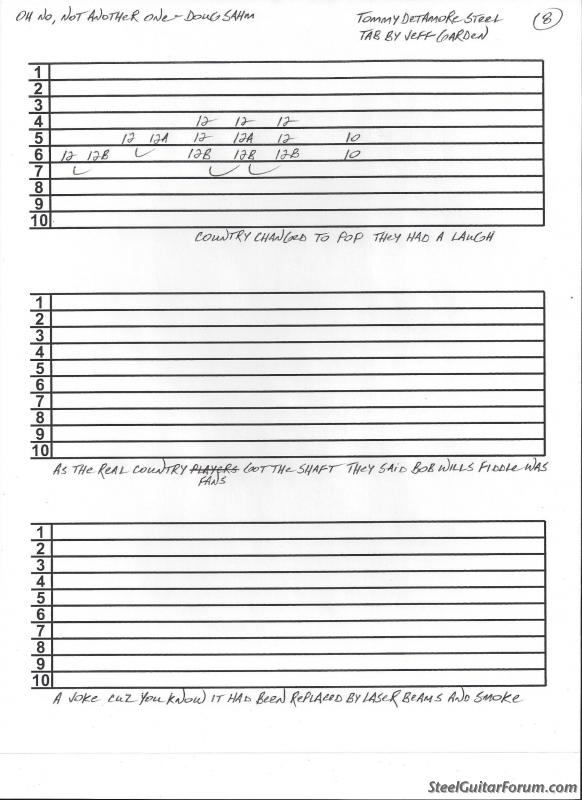 OH NO, NOT ANOTHER ONE - DOUG SAHM
TOMMY DETAMORE STEEL
TAB BY JEFF GARDEN
8
1
2
3
4 12 12 12
5 12 12A 12 12A 12 10
6 12 12B 12B 12B 12B 10
7
8
9
10
COUNTRY CHANGED TO POP THEY HAD A LAUGH
1
2
3
4
5
6
7
8
9
10
AS THE REAL COUNTRY PLAYERS GOT THE SHAFT THEY SAID BOB WILLS FIDDLE WAS
FANS
1
2
3
4
5
6
7
8
9
10
A JOKE CUZ YOU KNOW IT HAD BEEN REPLACED BY LASER BEAMS AND SMOKE
SteelGuitarForum.com